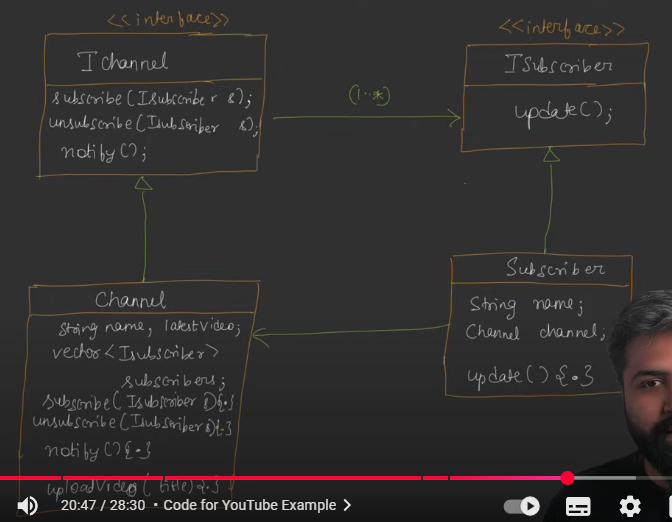 <<interface>>
Ichannel
subscribe(Isubscriber s);
unsubscribe(Isubscriber s);
notify();
(1..*)
<<interface>>
ISubscriber
update();
Channel
String name, latestvideo;
vector<Isubscriber>
subscribers;
subscribe(Isubscriber s){.}
unsubscribe(Isubscriber s){.}
notify(){.}
uploadVideo(title){.}
Subscriber
String name;
Channel channel;
update(){.}
20:47 / 28:30 • Code for YouTube Example >